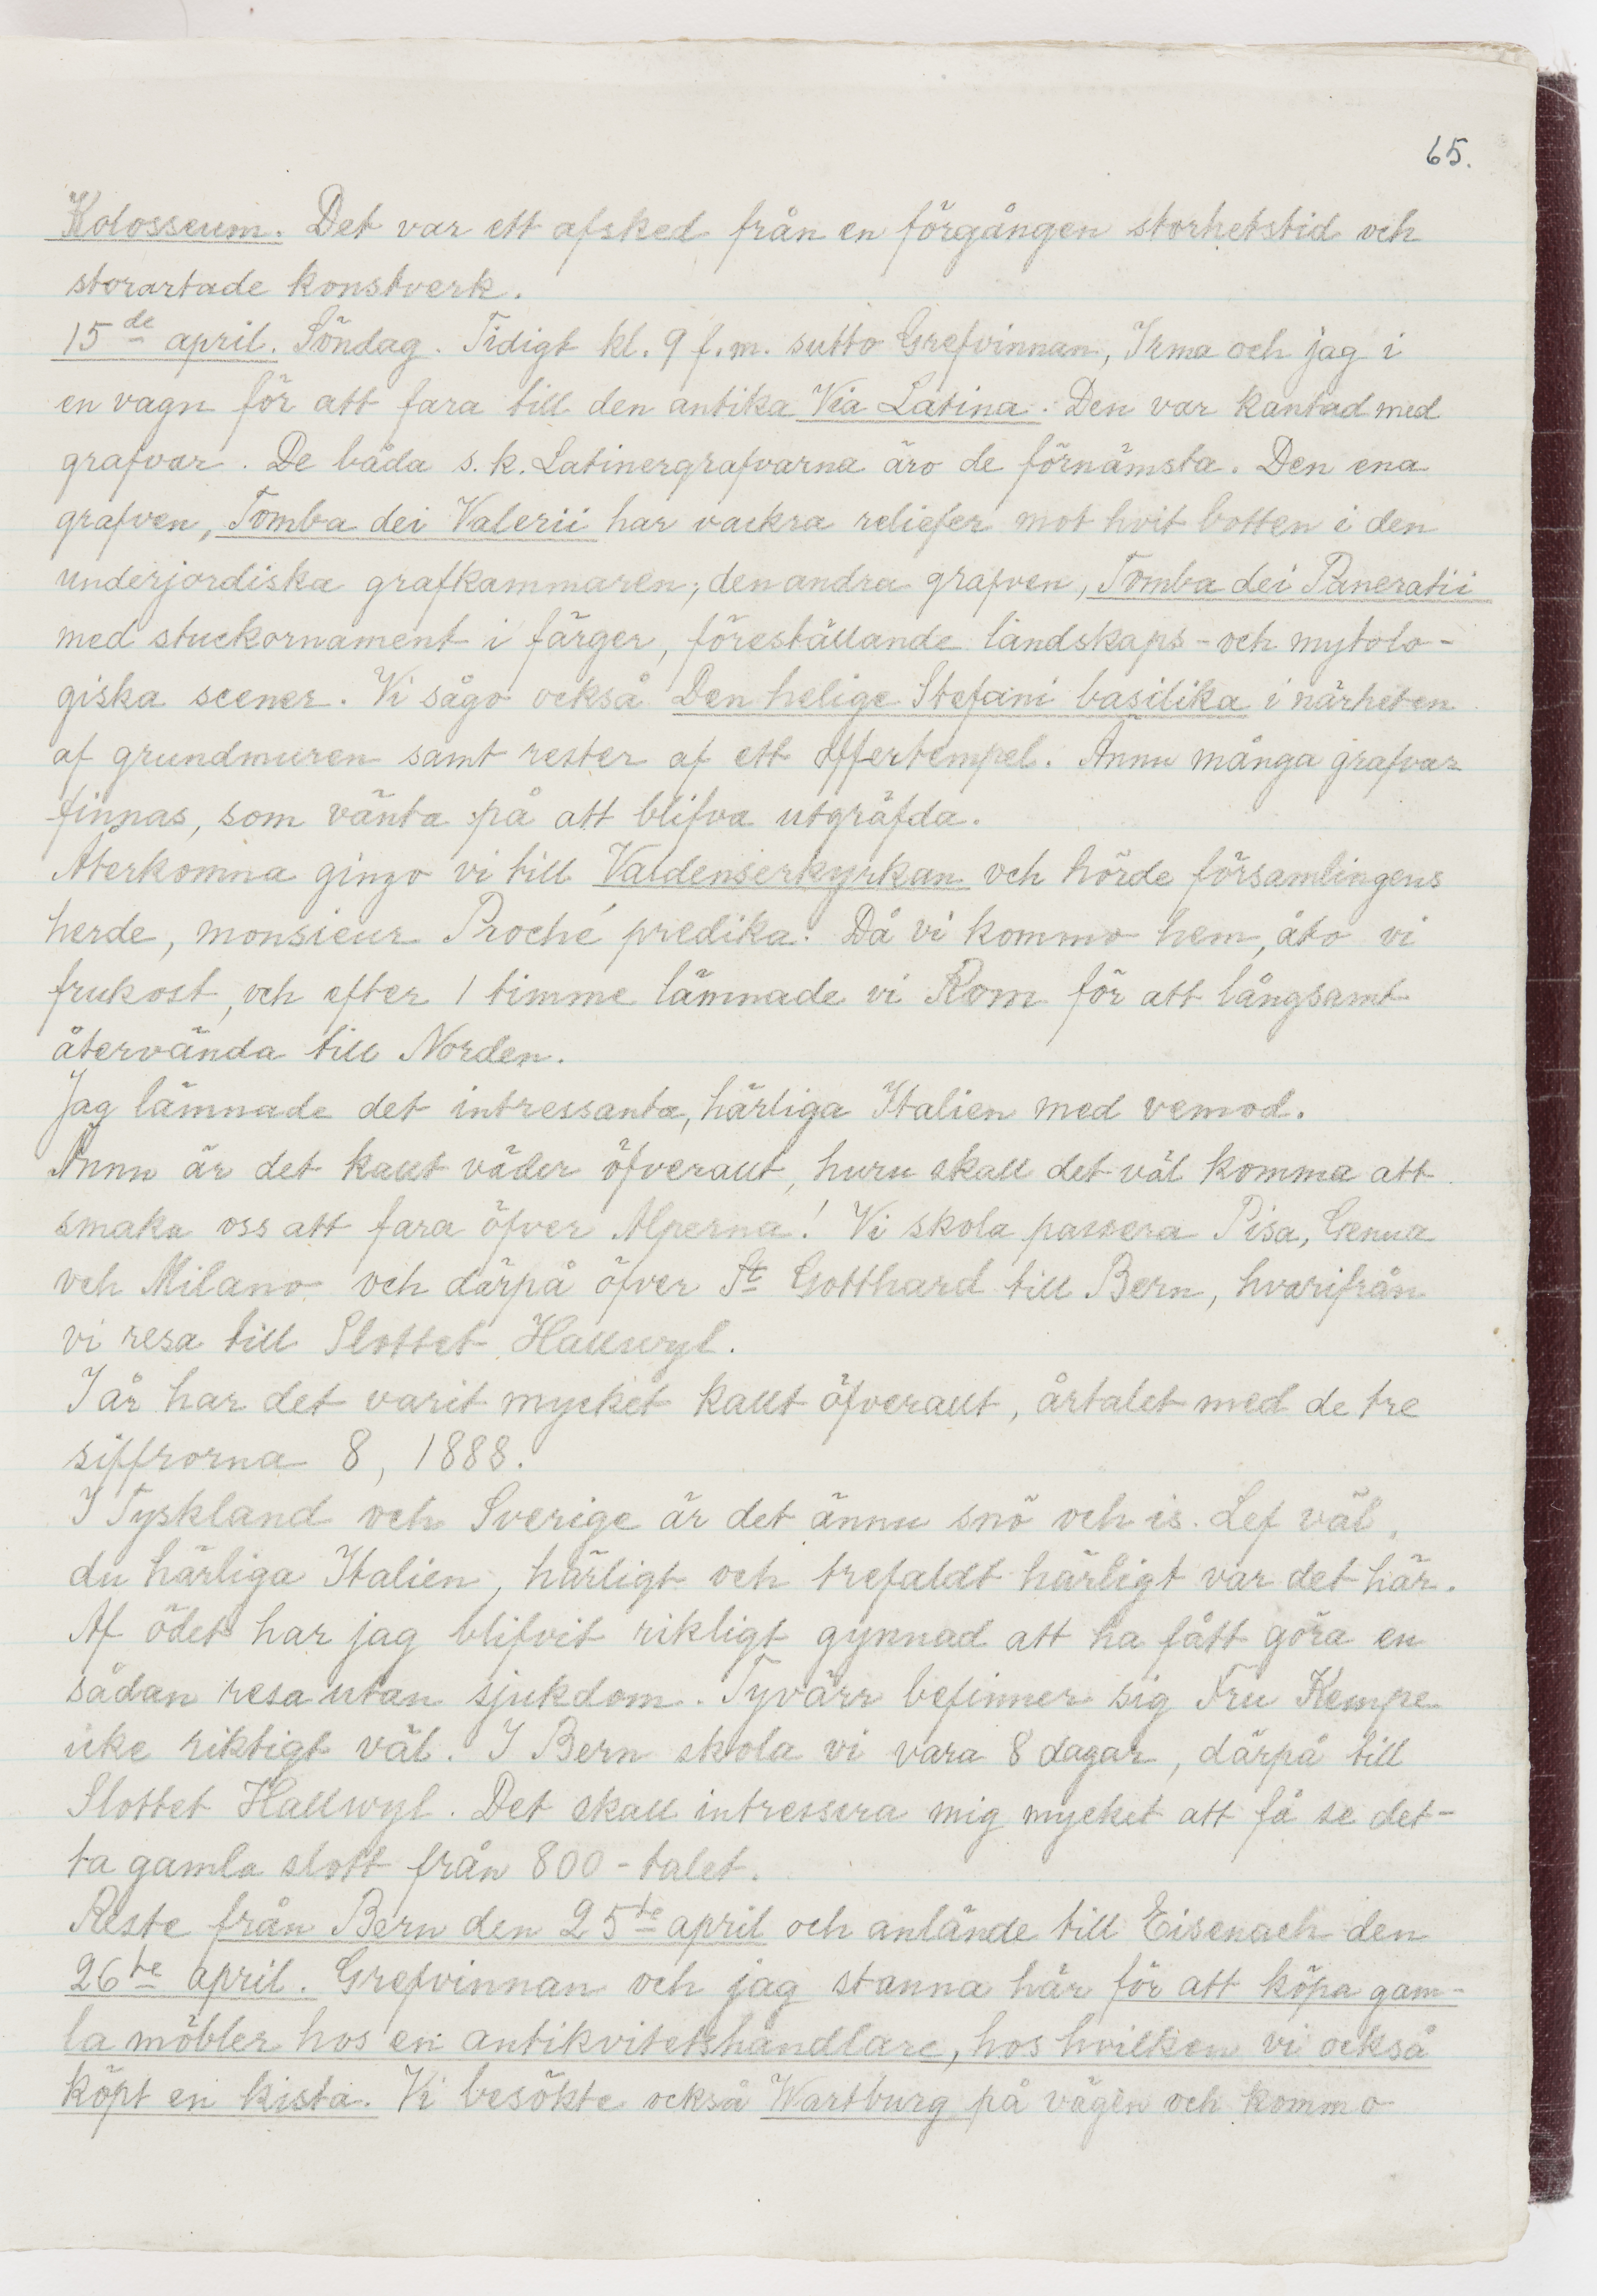 65.
Kolosseum. Det var ett afsked från en förgången storhetstid och
storartade konstverk.
15de april. Söndag. Tidigt kl. 9 f.m. sutto Grefvinnan, Irma och jag i
en vagn för att fara till den antika Via Latina. Den var kantad med
grafvar. De båda s.k. Latinergrafvarna äro de förnämsta. Den ena
grafven, Tomba dei Valerii har vackra reliefer mot hvit botten i den
underjordiska grafkammaren; den andra grafven, Tomba dei Paneratii
med stuckornament i färger, föreställande landskaps- och mytolo-
giska scener. Vi sågo också Den helige Stefani basilika i närheten
af grundmuren samt rester af ett offertempel. Ännu många grafvar
finnas, som vänta på att blifva utgräfda.
Återkomna gingo vi till Valdenserkyrkan och hörde församlingens
herde, monsieur Proché predika. Då vi kommo hem, åto vi
frukost, och efter 1 timme lämnade vi Rom för att långsamt
återvända till Norden.
Jag lämnade det intressanta, härliga Italien med vemod.
Ännu är det kallt väder öfverallt, huru skall det väl komma att
smaka oss att fara öfver Alperna! Vi skola passera Pisa, Genua
och Milano och därpå öfver St Gotthard till Bern, hvarifrån
vi resa till Slottet Hallwyl.
I år har det varit mycket kallt öfverallt, årtalet med de tre
siffrorna 8, 1888.
I Tyskland och Sverige är det ännu snö och is. Lef väl,
du härliga Italien, härligt och trefaldt härligt var det här.
Af ödet har jag blifvit rikligt gynnad att ha fått göra en
sådan resa utan sjukdom. Tyvärr befinner sig Fru Kempe
icke riktigt väl. I Bern skola vi vara 8 dagar, därpå till
Slottet Hallwyl. Det skall intressera mig mycket att få se det-
ta gamla slott från 800-talet.
Reste från Bern den 25te april och anlände till Eisenach den
26te april. Grefvinnan och jag stanna här för att köpa gam-
la möbler hos en antikvitetshandlare, hos hvilken vi också
köpt en kista. Vi besökte också Wartburg på vägen och kommo